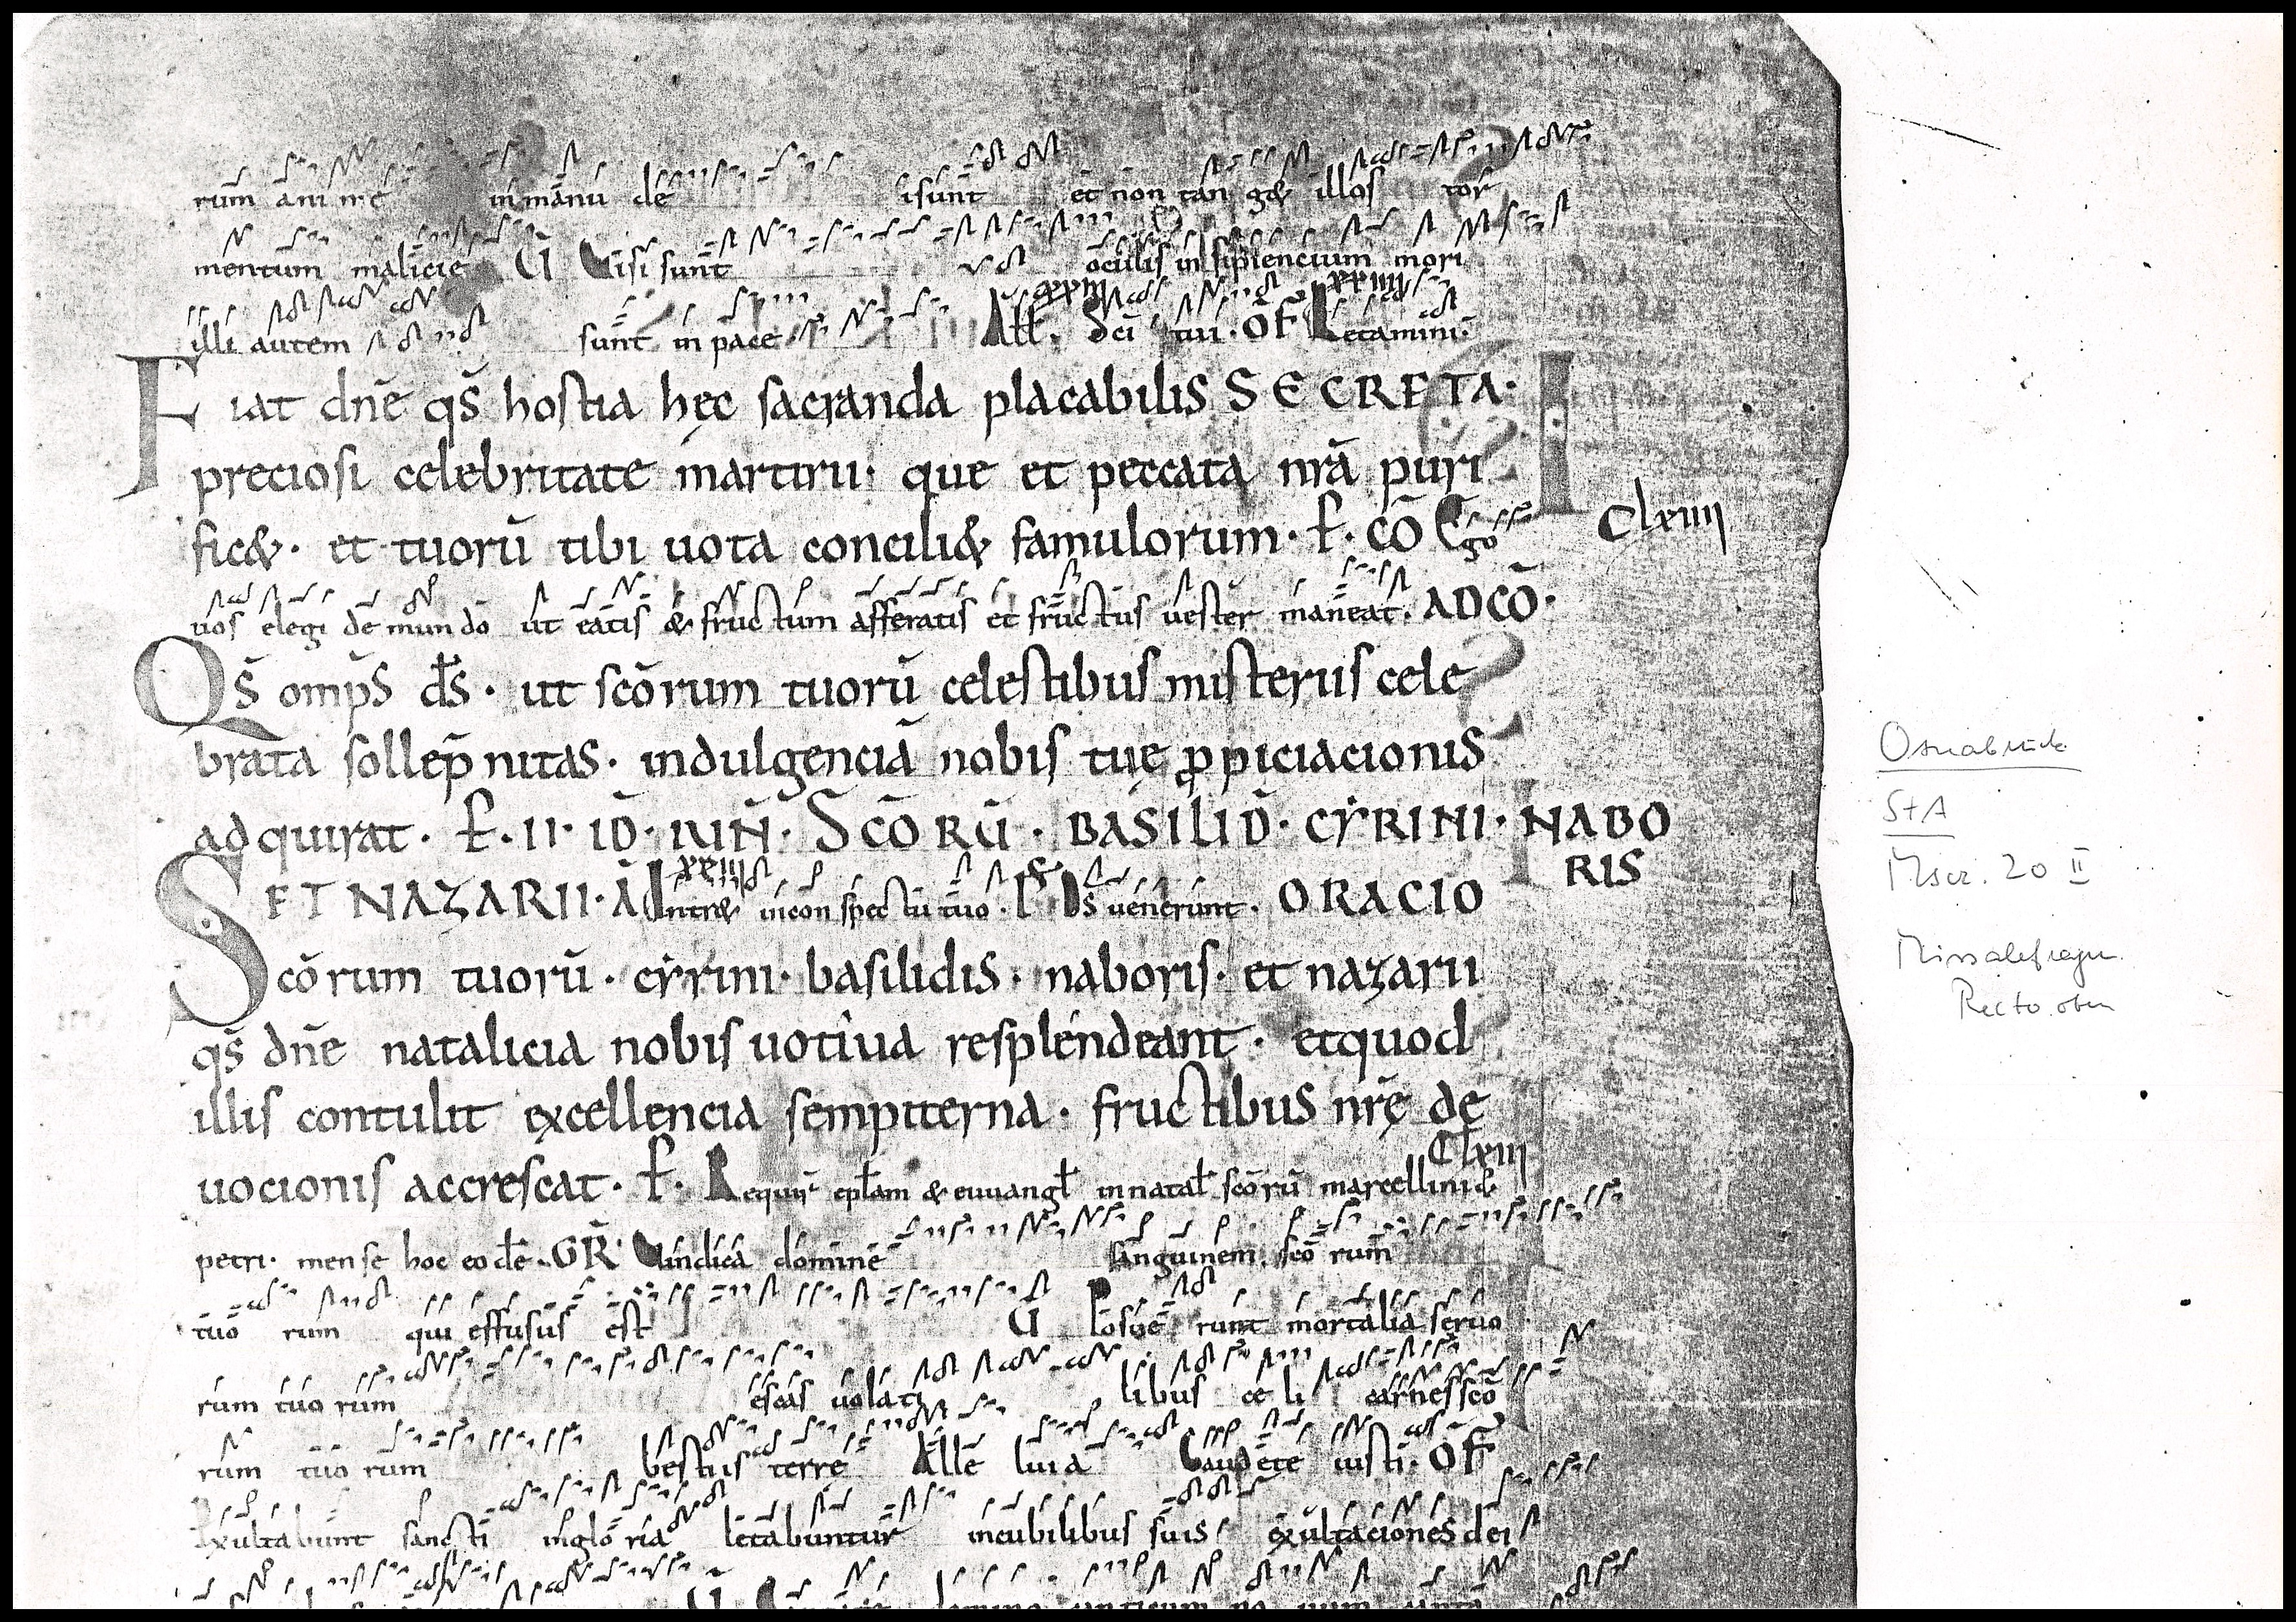 rum anime in manu de isunt et non tan g& illos tor
mentum malicie Ū Visi sunt oculis insipiencium mori
xxiii xxiiii
illi autem sunt in pace All. Sci tui · OF Letamini·
Fiat dn̄e qs̄ hostia hęc sacranda placabilis SECRETA·
preciosi celebritate martirii· que et peccata nrā puri
fic&· et tuorū tibi uota concili& famulorum· P· CŌ Ego
Clxiiii
uos elegi de mundo ut eatis & fructum afferatis et fructus uester maneat· AD CŌ·
Qs̄ omps̄ ds̄· ut scōrum tuorū celestibus misteriis cele
brata sollep̄nitas· indulgenciā nobis tuę ꝓpiciacionis
adquirat· P· II· ID̄· IUN̄· SCŌRŪ· BASILID̄· CYRINI· NABO
RIS
xxiii
ET NAZARII· Ā Intr& in conspectu tuo· P Ds uenerunt· ORACIO
Scōrum tuorū· cyrini· basilidis· naboris· et nazarii
qs̄ dn̄e natalicia nobis uotiua resplendeant· et quod
illis contulit excellencia sempiterna· fructibus nrę̄ de
Clxiii
uocionis accrescat· P· Requir eplam & euuangl in natal scōrū marcellini &
petri· mense hoc eodē· GR̄· Vindica domine sanguinem scō rum
tuo rum qui effusus est Ū Posue runt mortalia seruo
rum tuo rum escas uolati libus ce li carnes scō
rum tuo rum bestiis terrę Alle luia Gaudete iusti· OF
Exultabunt sancti in glo ria letabuntur in cubilibus suis exultaciones dei
Osnabrück
StA
Mscr. 20 II
Missalefragm.
Recto oben